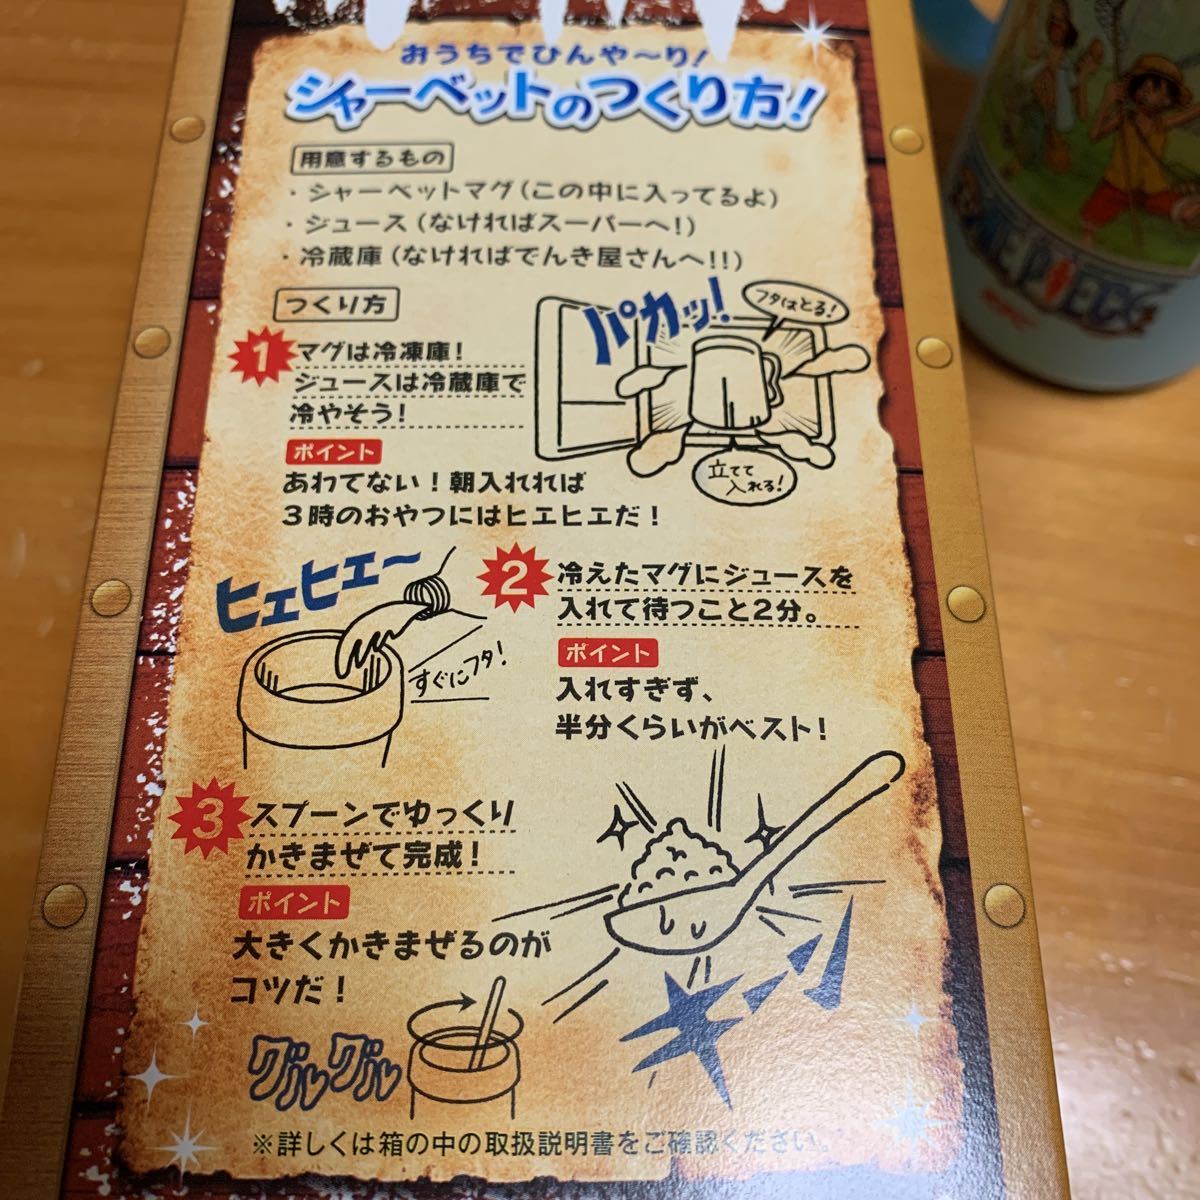 おうちでひんや～り!
シャーベットのつくり方!
用意するもの
・シャーベットマグ(この中に入ってるよ)
・ジュース(なければスーパーへ!)
・冷蔵庫(なければでんき屋さんへ!!)
つくり方
パカッ!
フタはとる!
1 マグは冷凍庫!
ジュースは冷蔵庫で
冷やそう!
立てて
入れる!
ポイント
あわてない!朝入れれば
3時のおやつにはヒエヒエだ!
ヒエヒエ～
すぐにフタ!
2 冷えたマグにジュースを
入れて待つこと2分。
ポイント
入れすぎず、
半分くらいがベスト!
3 スプーンでゆっくり
かきまぜて完成!
ポイント
大きくかきまぜるのが
コツだ!
グルグル
キーン
※詳しくは箱の中の取扱説明書をご確認ください。
ONE PIECE